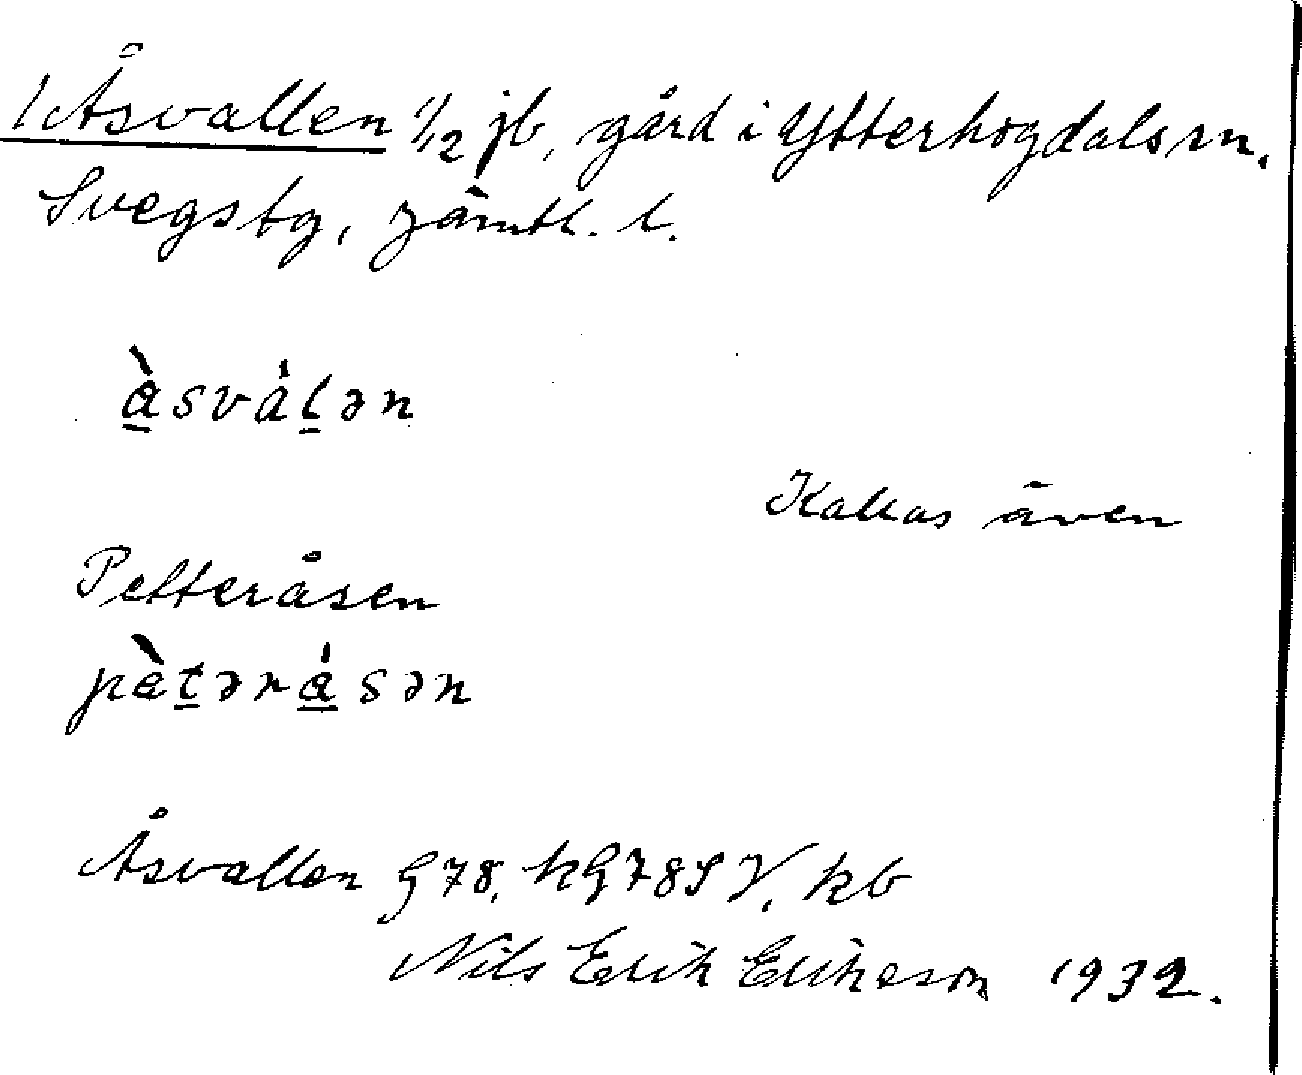 1 Åsvallen 1/2 jb, gård i Ytterhogdals sn,
Svegs tg, Jämtl. l.
àsvál̠ən
Kallas även
Petteråsen
pèt̠ərásən
Åsvallen G78, kG78SV, kb
Nils Erik Erikeson 1932.